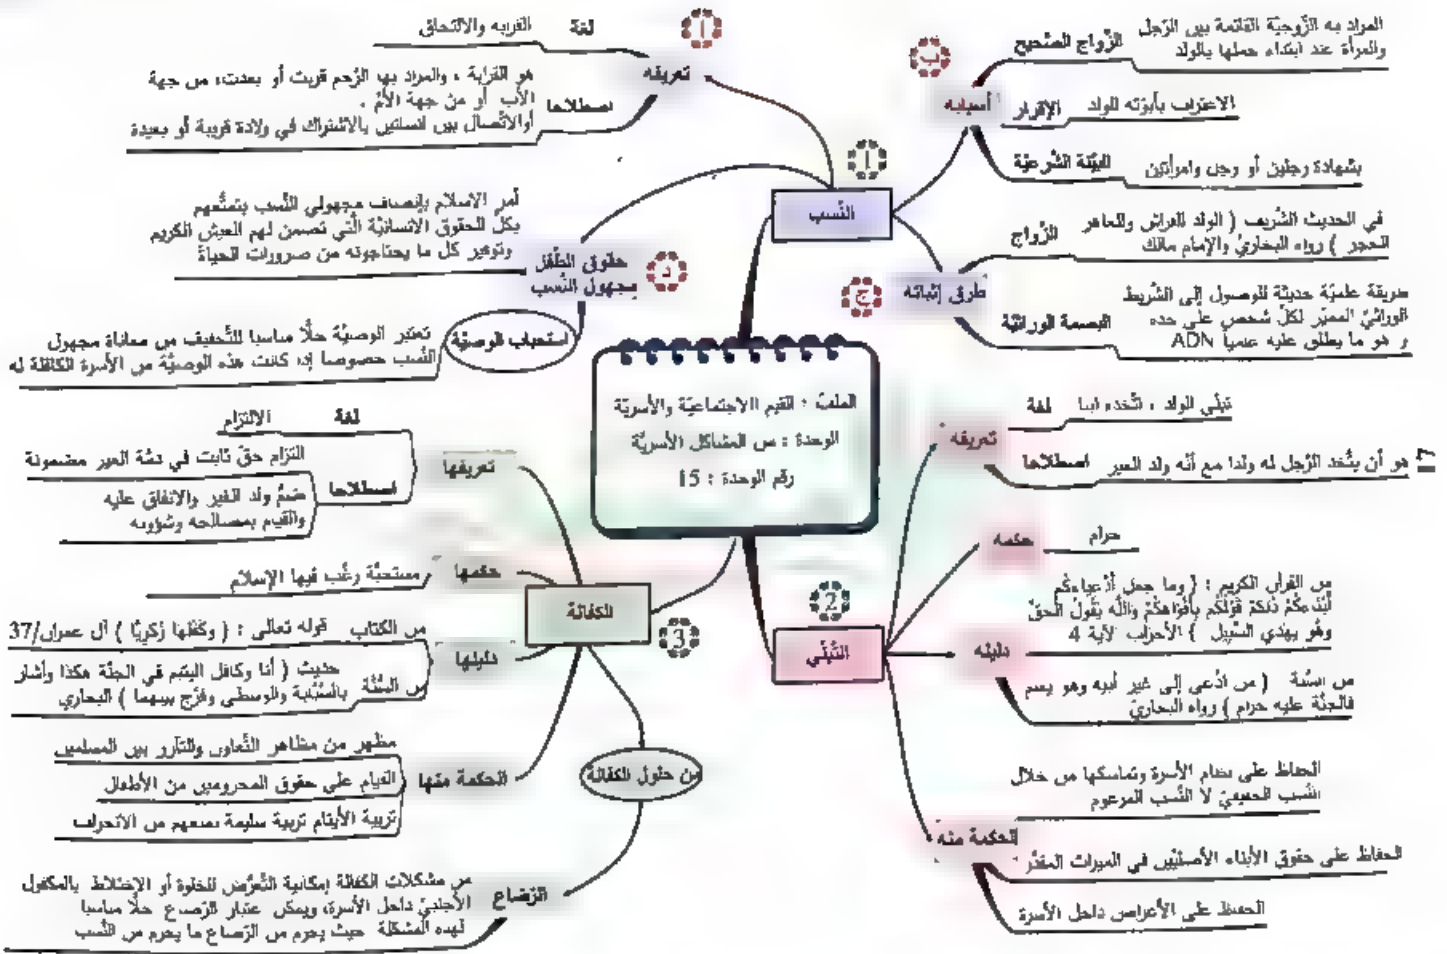 الملف : القيم الاجتماعيّة والأسريّة
الوحدة : من المشاكل الأسريّة
رقم الوحدة : 15
1
النّسب
أ
تعريفه
لغة
القرابة والالتحاق
اصطلاحا
هو القرابة ، والمراد بها الرّحم قربت أو بعدت، من جهة
الأب أو من جهة الأمّ .
أوالاتّصال بين انسانين بالاشتراك في ولادة قريبة أو بعيدة
ب
أسبابه
الزّواج الصّحيح
المراد به الزّوجيّة القائمة بين الرّجل
والمرأة عند ابتداء حملها بالولد
الإقرار
الاعتراف بأبوّته للولد
البيّنة الشّرعيّة
بشهادة رجلين أو رجل وامرأتين
ج
طرق إثباته
الزّواج
في الحديث الشّريف ( الولد للفراش وللعاهر
الحجر ) رواه البخاريّ والإمام مالك
البصمة الوراثيّة
طريقة علميّة حديثة للوصول إلى الشّريط
الوراثيّ المميّز لكلّ شخص على حده
و هو ما يطلق عليه علمياً ADN
د
حقوق الطّفل
مجهول النّسب
أمر الاسلام بإنصاف مجهولي النّسب بتمتّعهم
بكلّ الحقوق الانسانيّة الّتي تضمن لهم العيش الكريم
وتوفير كل ما يحتاجونه من ضرورات الحياة
استحباب الوصيّة
تعتبر الوصيّة حلّا مناسبا للتّخفيف من معاناة مجهول
النّسب خصوصا إذا كانت هذه الوصيّة من الأسرة الكافلة له
2
التّبنّي
تعريفه
لغة
تبنّى الولد ، اتّخذه ابنا
اصطلاحا
هو أن يتّخذ الرّجل له ولدا مع أنّه ولد الغير
17
حكمه
حرام
دليله
من القرآن الكريم : ( وما جعل أَدْعِياءَكُم
أَبْنَاءَكُمْ ذَلِكُمْ قَوْلُكُم بِأَفْوَاهِكُمْ وَاللَّه يَقُولُ الْحَقَّ
وهُو يهدي السَّبِيل ) الأحزاب لآية 4
من السّنّة ( من ادّعى إلى غير أبيه وهو يعلم
فالجنّة عليه حرام ) رواه البخاريّ
الحكمة منه
الحفاظ على نظام الأسرة وتماسكها من خلال
النّسب الحقيقيّ لا النّسب المزعوم
الحفاظ على حقوق الأبناء الأصليّين في الميراث المقدّر
الحفاظ على الأعراض داخل الأسرة
3
الكفالة
تعريفها
لغة
الالتزام
اصطلاحا
التزام حقّ ثابت في ذمّة الغير مضمونة
ضمّ ولد الغير والانفاق عليه
والقيام بمصالحه وشؤونه
حكمها
مستحبّة رغّب فيها الإسلام
دليلها
من الكتاب قوله تعالى : ( وكفّلها زكريّا ) آل عمران/37
من السّنّة
حديث ( أنا وكافل اليتيم في الجنّة هكذا وأشار
بالسّبّابة والوسطى وفرّج بينهما ) البخاري
الحكمة منها
مظهر من مظاهر التّعاون والتآزر بين المسلمين
القيام على حقوق المحرومين من الأطفال
تربية الأيتام تربية سليمة تمنعهم من الانحراف
من حلول الكفالة
الرّضاع
من مشكلات الكفالة إمكانية التّعرّض للخلوة أو الإختلاط بالمكفول
الأجنبيّ داخل الأسرة، ويمكن اعتبار الرّضاع حلّا مناسبا
لهذه المشكلة حيث يحرم من الرّضاع ما يحرم من النّسب